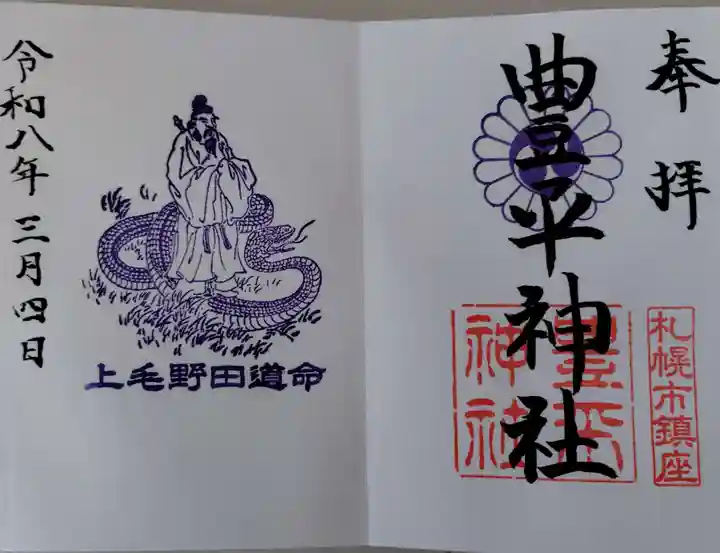 奉拝
豊平神社
札幌市鎮座
豊平神社
上毛野田道命
令和八年三月四日